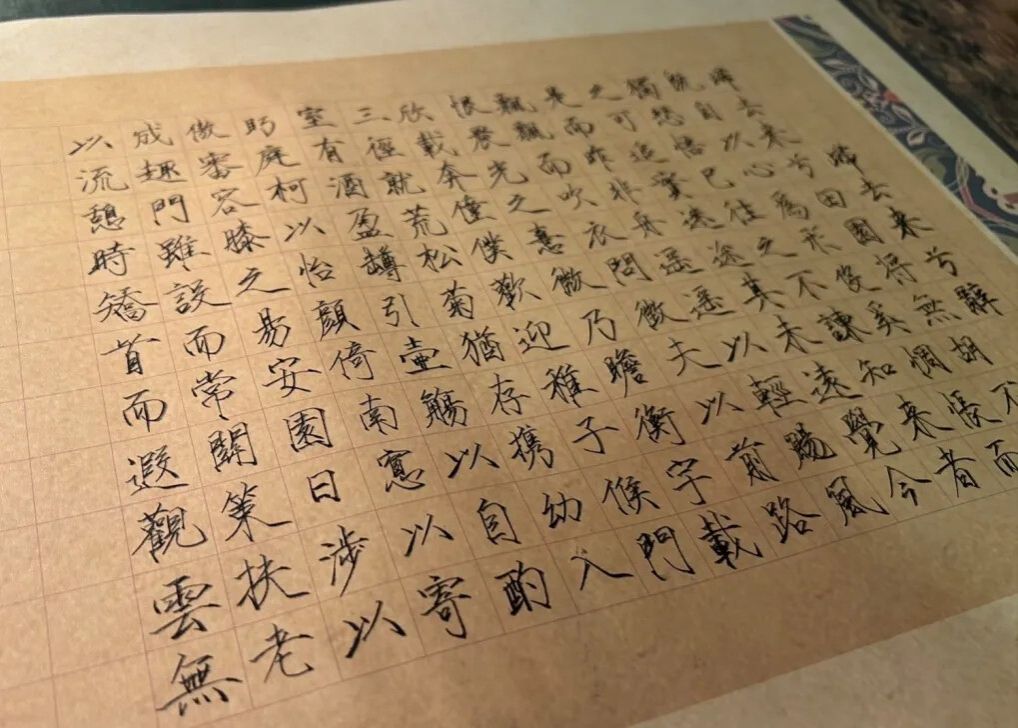 歸去来兮辭
歸去来兮田園將無胡不
既自以心為形役奚惆悵而
獨悲悟已往之不諫知来者
之可追實迷途其未遠覺今
是而昨非舟遥遥以輕颺風
飄飄而吹衣問征夫以前路
恨晨光之熹微乃瞻衡宇載
欣載奔僮僕歡迎稚子候門
三徑就荒松菊猶存携幼入
室有酒盈罇引壺觴以自酌
眄庭柯以怡顏倚南窓以寄
傲審容膝之易安園日涉以
成趣門雖設而常關策扶老
以流憩時矯首而遐觀雲無